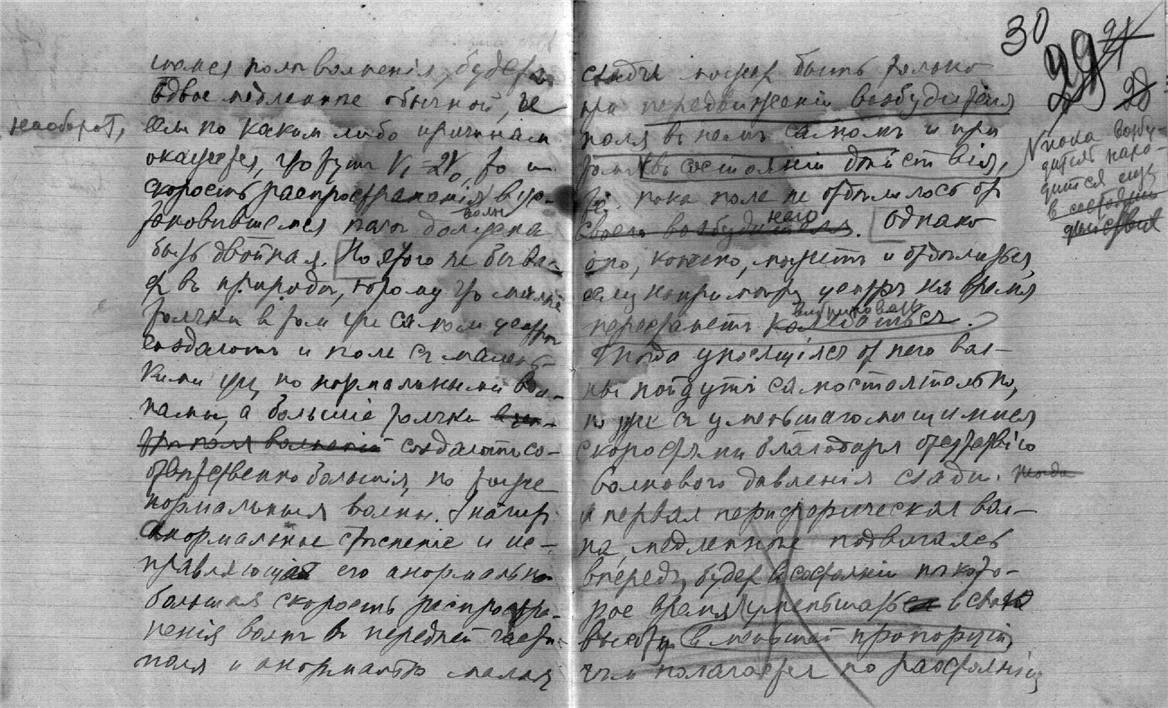 шемся поле волненія, будет
вдвое медленнѣе обычной,
наоборот,
если по каким либо причинам
окажется, что тут V₁ = 2V₀, то и
скорость распространения в ус-
тановившемся поле волн должна
быть двойная. Но этого не быва-
ет в природѣ, потому что малые
толчки в том же самом центрѣ
создают и поле с малень-
кими же, но нормальными вол-
нами, а большіе толчки
поля волненій создают со-
отвѣтственно большія, но тоже
нормальныя волны.
анормальное стѣсненіе и ис-
правляющая его анормально
большая скорость распростра-
ненія волн в передней части
поля и анормально малая
30
29
сзади может быть только
при передвиженіи возбудителя
поля в нем самом и при
том в состояніи дѣйствія,
т.е. пока поле не отдѣлилось от
своего возбудителя. него Однако
оно, конечно, может и отдѣлиться,
если например центр на время
перестанет колебаться.
Тогда унесшіяся от него вол-
ны пойдут самостоятельно,
но уже с уменьшающимися
скоростями благодаря отсутствію
волнового давленія сзади. тогда
и первая периферическая вол-
на, медленнѣе подвигаясь
вперед, будет в состояніи нѣкото-
рое время уменьшать в свою
высоту в меньшей пропорціи,
чѣм полагается по разстоянію
пока возбу-
дитель наро-
дится еще
в состояніи
дѣйствія